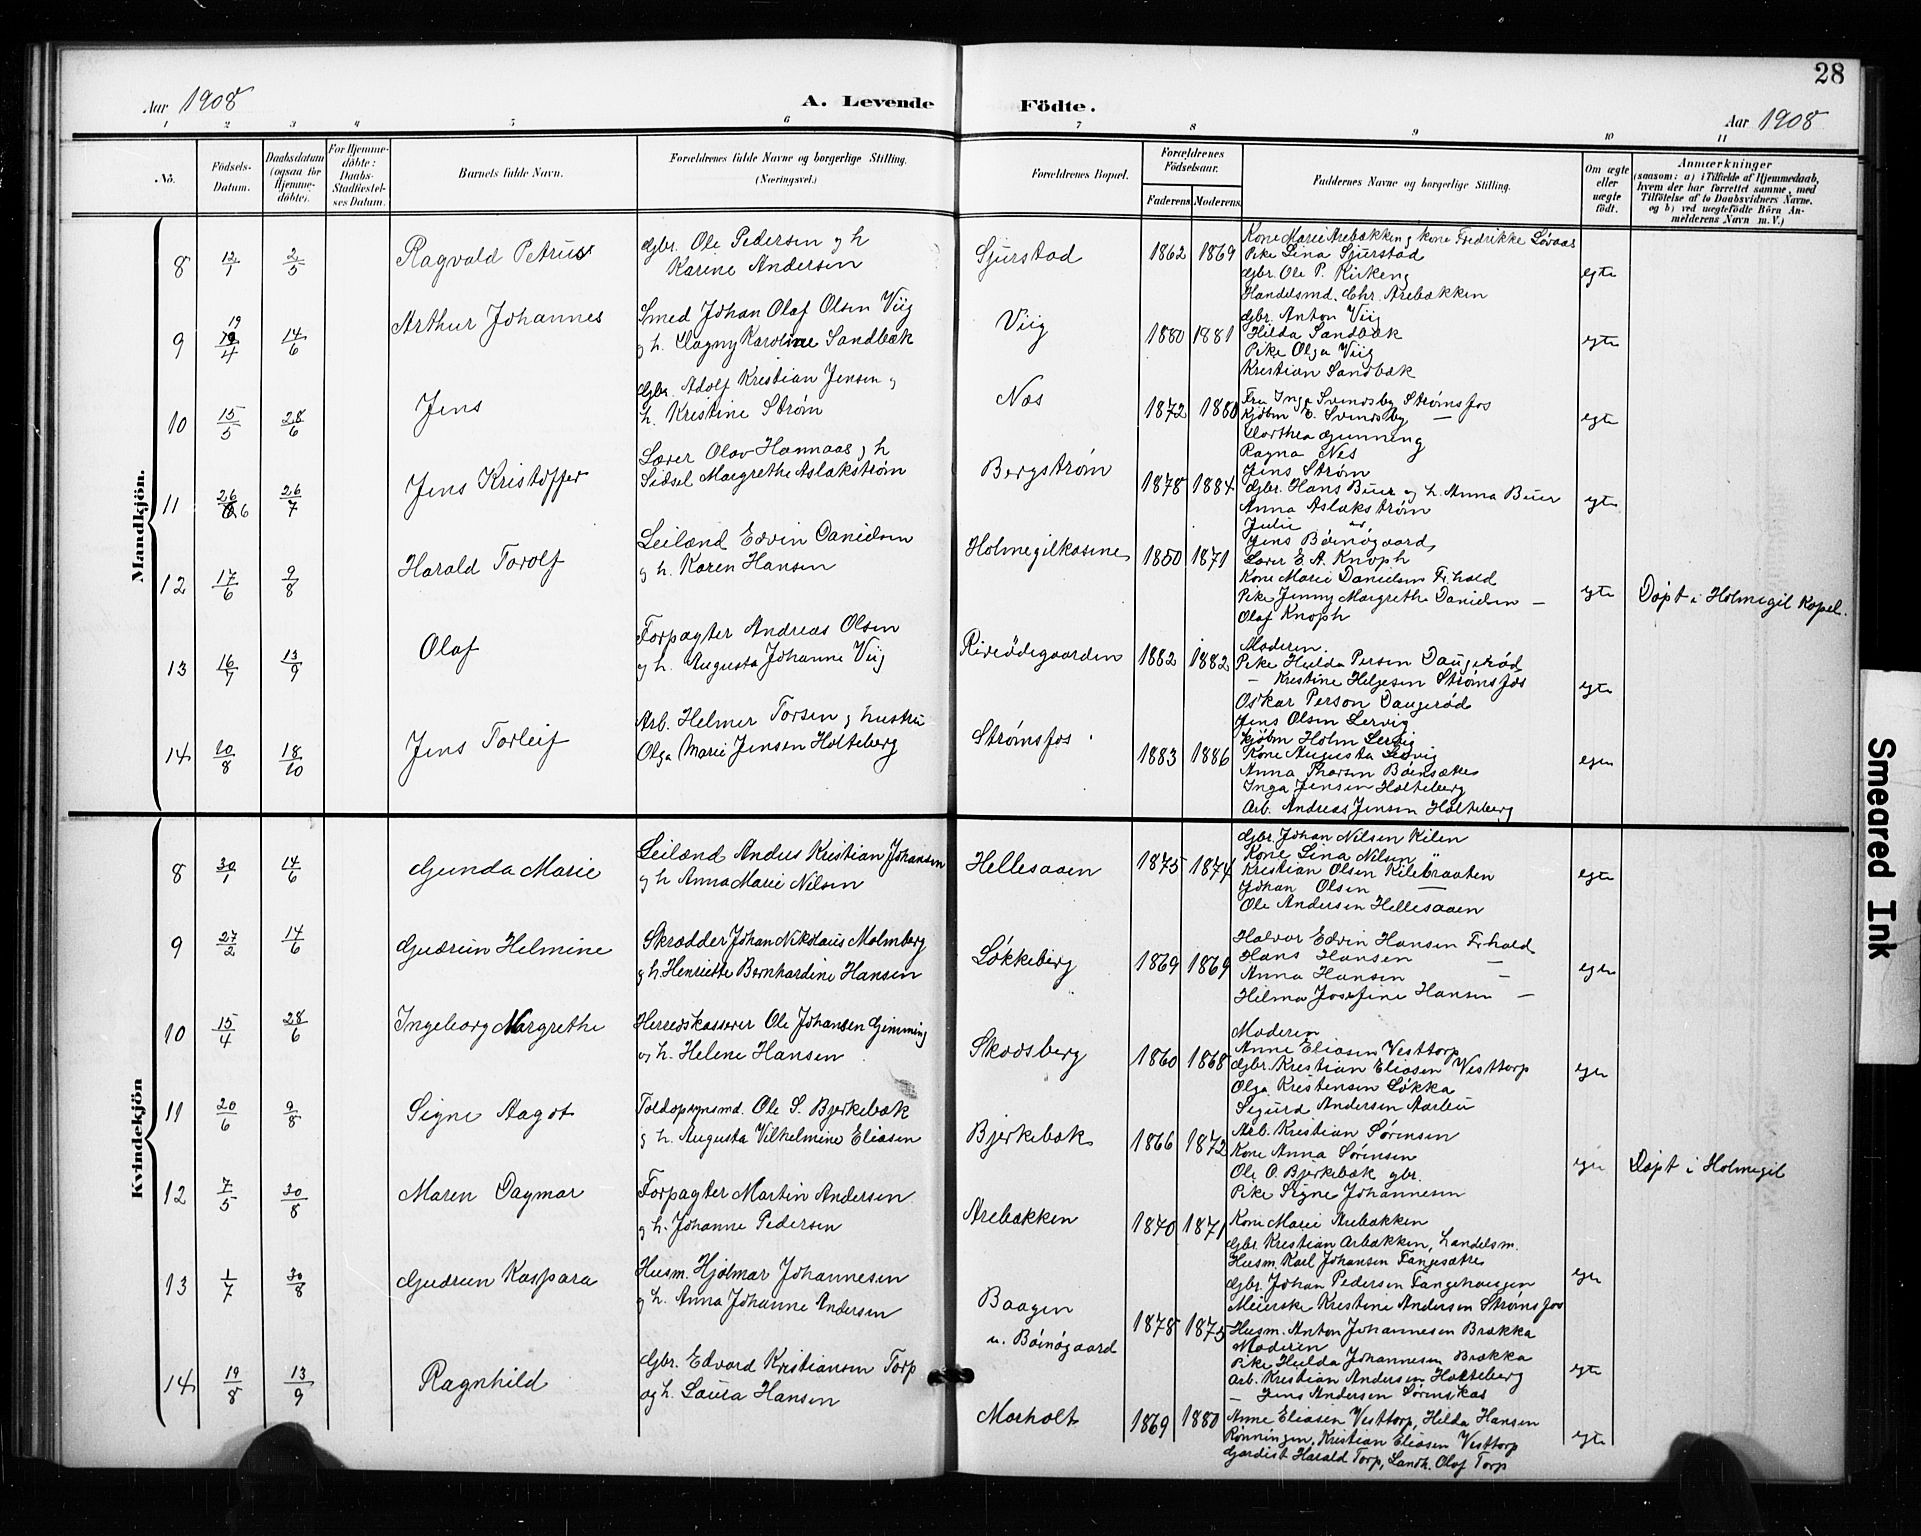 28
Aar 1908
A. Levende Födte.
Aar 1908
1 2 3 4 5 6 7 8 9 10 11
No.
Födsels-Datum.
Daabsdatum (ogsaa for Hjemme-döbte).
For Hjemme-döbte: Daabs-Stadfæstel-ses Datum.
Barnets fulde Navn.
Forældrenes fulde Navne og borgerlige Stilling.
(Næringsvei.)
Forældrenes Bopæl.
Forældrenes Födselsaar.
Faderens Moderens
Faddernes Navne og borgerlige Stilling.
Om ægte eller uægte födt.
Anmærkninger
(saasom: a) i Tilfælde af Hjemmedaab, hvem der har forrettet samme, med Tilföielse af to Daabsvidners Navne, og b) ved uægtefödte Börn An-melderens Navn m. V.)
Mandkjön.
8 12/1 2/5 Ragvald Petrus
Gbr. Ole Pedersen og h
Karine Andersen
Sjurstad 1862 1869
Kone Marie Arebakken, Kone Fredrikke Løvaas
Pike Lina Sjurstad
Gbr. Ole P. Kirkeng
Handelsmd. Chr. Arebækken
egte
9 19/4 14/6 Arthur Johannes
Smed Johan Olaf Olsen Viig
og h. Dagny Karoline Sandbæk
Viig 1880 1881
Gbr. Anton Viig
Hilda Sandbæk
Pike Olga Viig
Kristian Sandbæk
egte
10 15/5 28/6 Jens
Gbr. Adolf Kristian Jensen og
h. Kristine Strøm
Næs 1872 1880
Fru Inga Svendsby Strømsfos
Kjøbm E. Svendsby —
Dorthea Gunneng
Ragna Nes
Jens Strøm
egte
11 26/6 26/7 Jens Kristoffer
Lærer Olav Hannaas og h
Sidsel Margrethe Aslakstrøm
Bergstrøm 1878 1884
Gbr. Hans Buer og h. Anna Buer
Anna Aslakstrøm
Julie "
Jens Bøinøgaard
egte
12 17/6 9/8 Harald Torolf
Leilænd Edvin Danielsen
og h. Karen Hansen
Holmegilkasene 1850 1871
Lærer E. A. Knoph
Kone Marie Danielsen Fr.hald
Pike Jenny Margrethe Danielsen —
Olaf Knoph
egte
Døpt i Holmegil Kapel.
13 16/7 13/9 Olaf
Forpagter Andreas Olsen
og h. Augusta Johanne Viig
1882 1882
Moderen.
Pike Hulda Persen Daugerød
— Kristine Helgesen Strømsfos
Oskar Person Daugerød
Jens Olsen Lervig
egte
14 10/8 18/10 Jens Torleif
Arb. Helmer Torsen og hustru
Olga Marie Jensen Holteberg
Strømsfos 1883 1886
Kjøbm Holm Lervig
Kone Augusta Lervig
Anna Thorsen Bøensæter
Inga Jensen Holteberg
Arb. Andreas Jensen Holteberg
egte
Kvindekjön
8 30/1 14/6 Gunda Marie
Leilænd Anders Kristian Johansen
og h Anna Marie Nilsen
Hellesaaen 1875 1874
Gbr. Johan Nilsen Kilen
Kone Lina Nilsen "
Kristian Olsen Kilebraaten
Johan Olsen —
Ole Andersen Hellesaaen
egte
9 27/2 14/6 Gudrun Helmine
Skrædder Johan Nikolaus Malmberg
og h. Henriette Bernhardine Hansen
Løkkeberg 1869 1869
Halvor Edvin Hansen Fr.hald
Hans Hansen —
Anna Hansen —
Helma Josefine Hansen —
egte
10 15/4 28/6 Ingeborg Margrethe
Herredskasserer Ole Johansen Gimming
og h. Helene Hansen
Skodsberg 1860 1868
Moderen
Anne Eliasen Vesttorp
Gbr. Kristian Eliasen Vesttorp
Olga Kristensen Løkka
Sigurd Andersen Aarbu
egte
11 20/6 9/8 Signe Aagot
Toldopsynsmd. Ole S. Bjerkebæk
og h. Augusta Vilhelmine Eliasen
Bjerkebæk 1866 1872
Arb. Kristian Sørensen
Kone Anna Sørensen
Ole O. Bjerkebæk gbr.
Pike Signe Johannesen
egte
Døpt i Holmegil
12 7/5 30/8 Maren Dagmar
Forpagter Martin Andersen
og h. Johanne Pedersen
Arebækken 1840 1871
Kone Marie Arebækken
Gbr. Kristian Arbækken, handelsm.
Husm. Karl Johansen Tangesætre
Gbr. Johan Pedersen Tangehaugen
Meierske Kristine Andersen Strømsfos
egte
13 1/7 30/8 Gudrun Kaspara
Husm. Hjalmar Johannesen
og h. Anna Johanne Andersen
Baagen
u. Bøinøgaard
1878 1875
Husm. Anton Johannesen Brækka
Moderen
Pike Hulda Johannesen Brækka
Arb. Kristian Andersen Holteberg
— Jens Andersen Sørenskas
egte
14 19/8 13/9 Ragnhild
Gbr. Edvard Kristiansen Torp
og h. Laura Hansen
Morholt 1869 1880
Anne Eliasen Vesttorp, Hilda Hansen
Rønningen, Kristian Eliasen Vesttorp
Gardist Harald Torp, Landh. Olaf Torp
egte
Smeared Ink